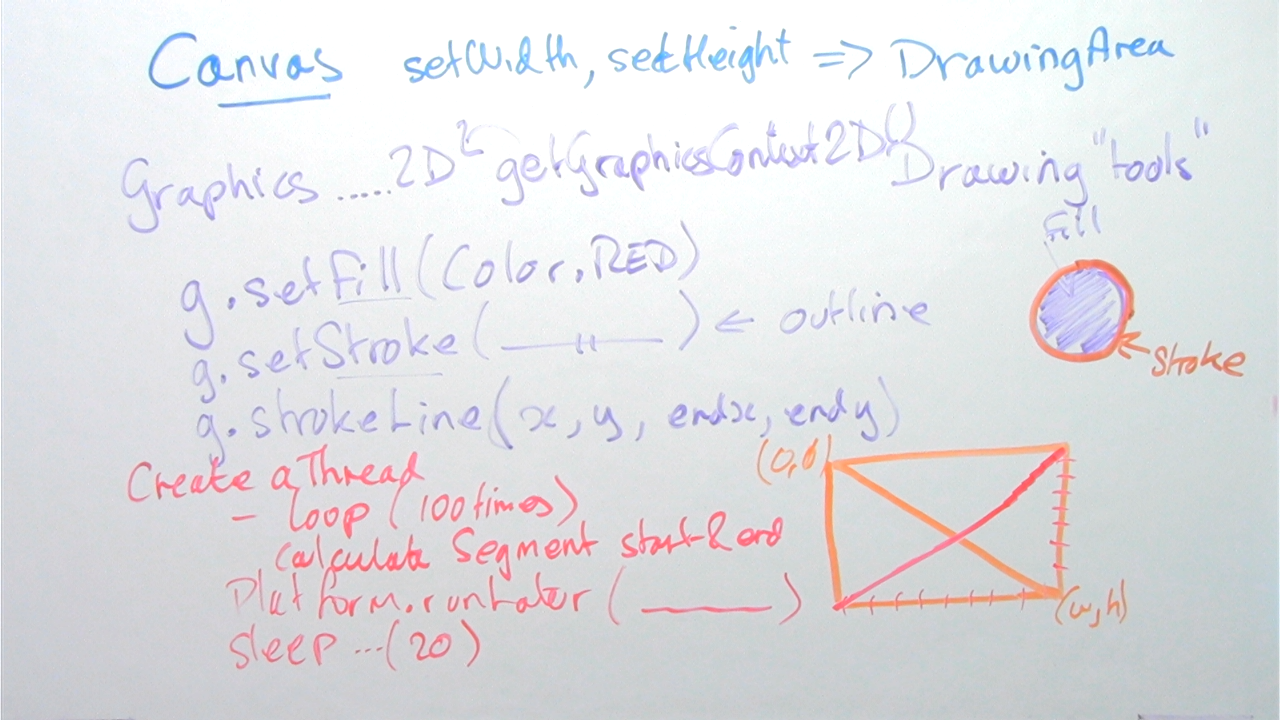 Canvas setWidth, setHeight => DrawingArea
Graphics .....2D getGraphicsContext2D() Drawing "tools"
Fill
g.setFill(Color.RED)
g.setStroke( __"__ ) ← outline
Stroke
g.strokeLine(x, y, endx, endy)
(0,0)
Create a Thread
- loop (100 times)
Calculate Segment start & end
Platform.runLater ( ______ )
(w,h)
sleep ...(20)